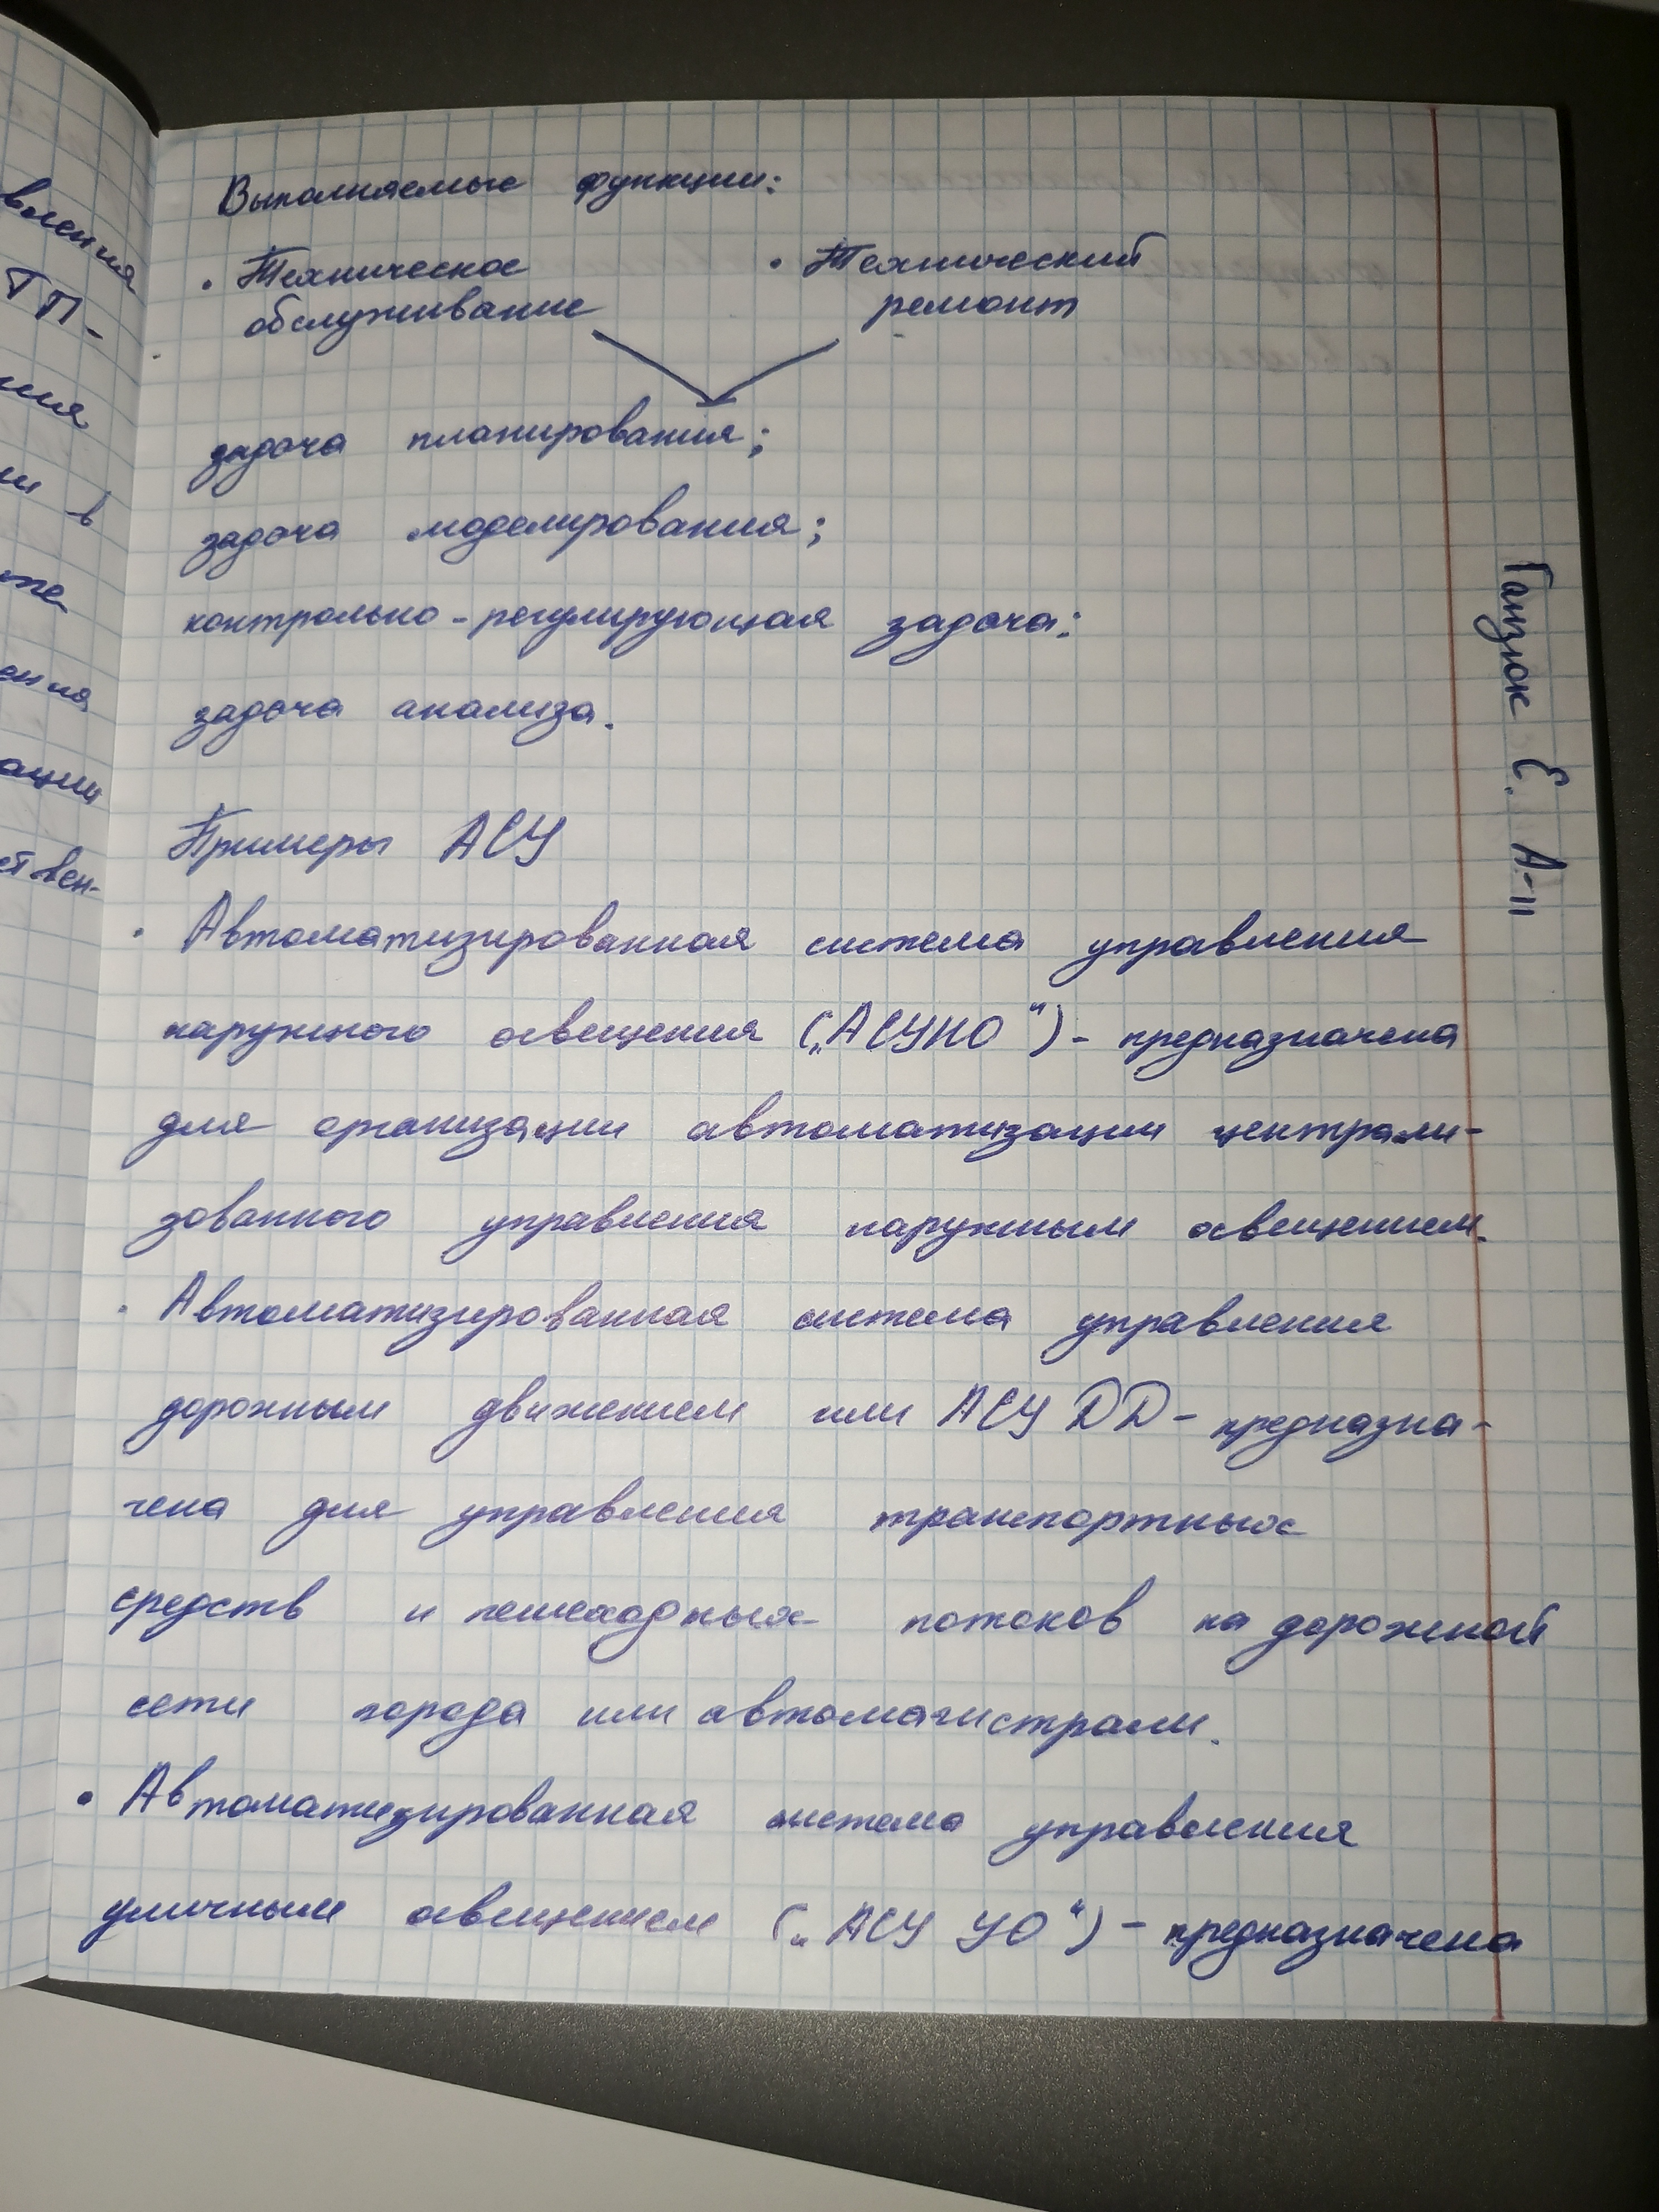 Выполняемые функции:
• Техническое
обслуживание
• Технический
ремонт
задача планирования;
задача моделирования;
контрольно-регулирующая задача:
задача анализа.
Примеры АСУ
• Автоматизированная система управления
наружного освещения („АСУНО“) - предназначена
для организации автоматизации централи-
зованного управления наружным освещением.
• Автоматизированная система управления
дорожным движением или АСУ ДД - предназна-
чена для управления транспортных
средств и пешеходных потоков на дорожной
сети города или автомагистрали.
• Автоматизированная система управления
уличным освещением („АСУ УО“) - предназначена
Ганзюк Е. А-11
вления
ТП-
ния
ии в
ения
ации
ствен-